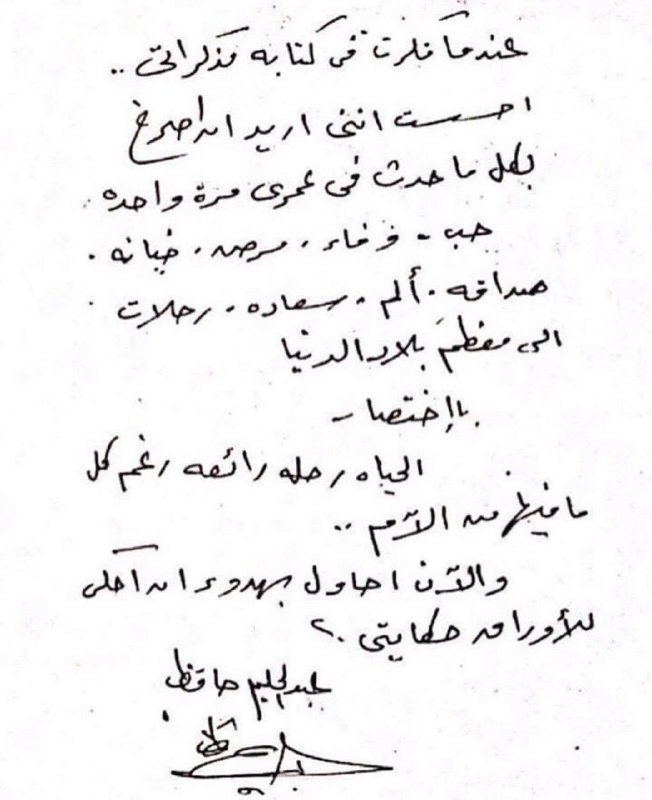 عندما فكرت فى كتابه مذكراتى ..
احسست اننى اريد ان اصرخ
بكل ما حدث فى عمرى مرة واحده
حب - وفاء . مرض . خيانه .
صداقه . ألم . سعاده . رحلات .
الى معظم بلاد الدنيا
بإختصار -
الحياه رحله رائعه رغم كل
ما فيها من الآم ..
والآن احاول بهدوء ان أحكى
للأوراق حكايتى .
عبدالحليم حافظ